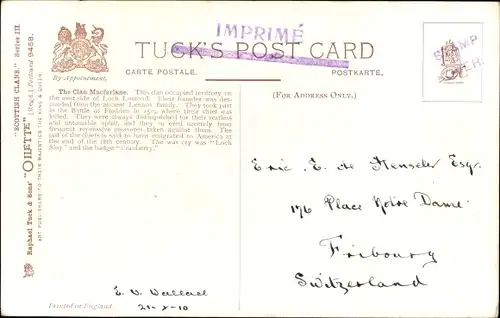 "SCOTTISH CLANS." Series III.
"OILETTE" [Regd.] Postcard 9458.
Raphael Tuck & Sons'
ART PUBLISHERS TO THEIR MAJESTIES THE KING & QUEEN.
By Appointment.
IMPRIMÉ
TUCK'S POST CARD
CARTE POSTALE.
POSTKARTE.
STAMP
The Clan Macfarlane. This clan occupied territory on
the west side of Loch Lomond. Their founder was des-
cended from the ancient Lennox family. They took part
in the Battle of Flodden in 1513, where their chief was
killed. They were always distinguished for their restless
and untamable spirit, and they
frequent repressive measures taken against them. The
last of the chiefs is said to have emigrated to America at
the end of the 18th century. The war cry was "Loch
Sloy," and the badge "Cranberry."
(FOR ADDRESS ONLY.)
Eric. E. de Henseler Esq.
176 Place Notre Dame
Fribourg
Switzerland
E. V. Wallace
21-X-10
Printed in England